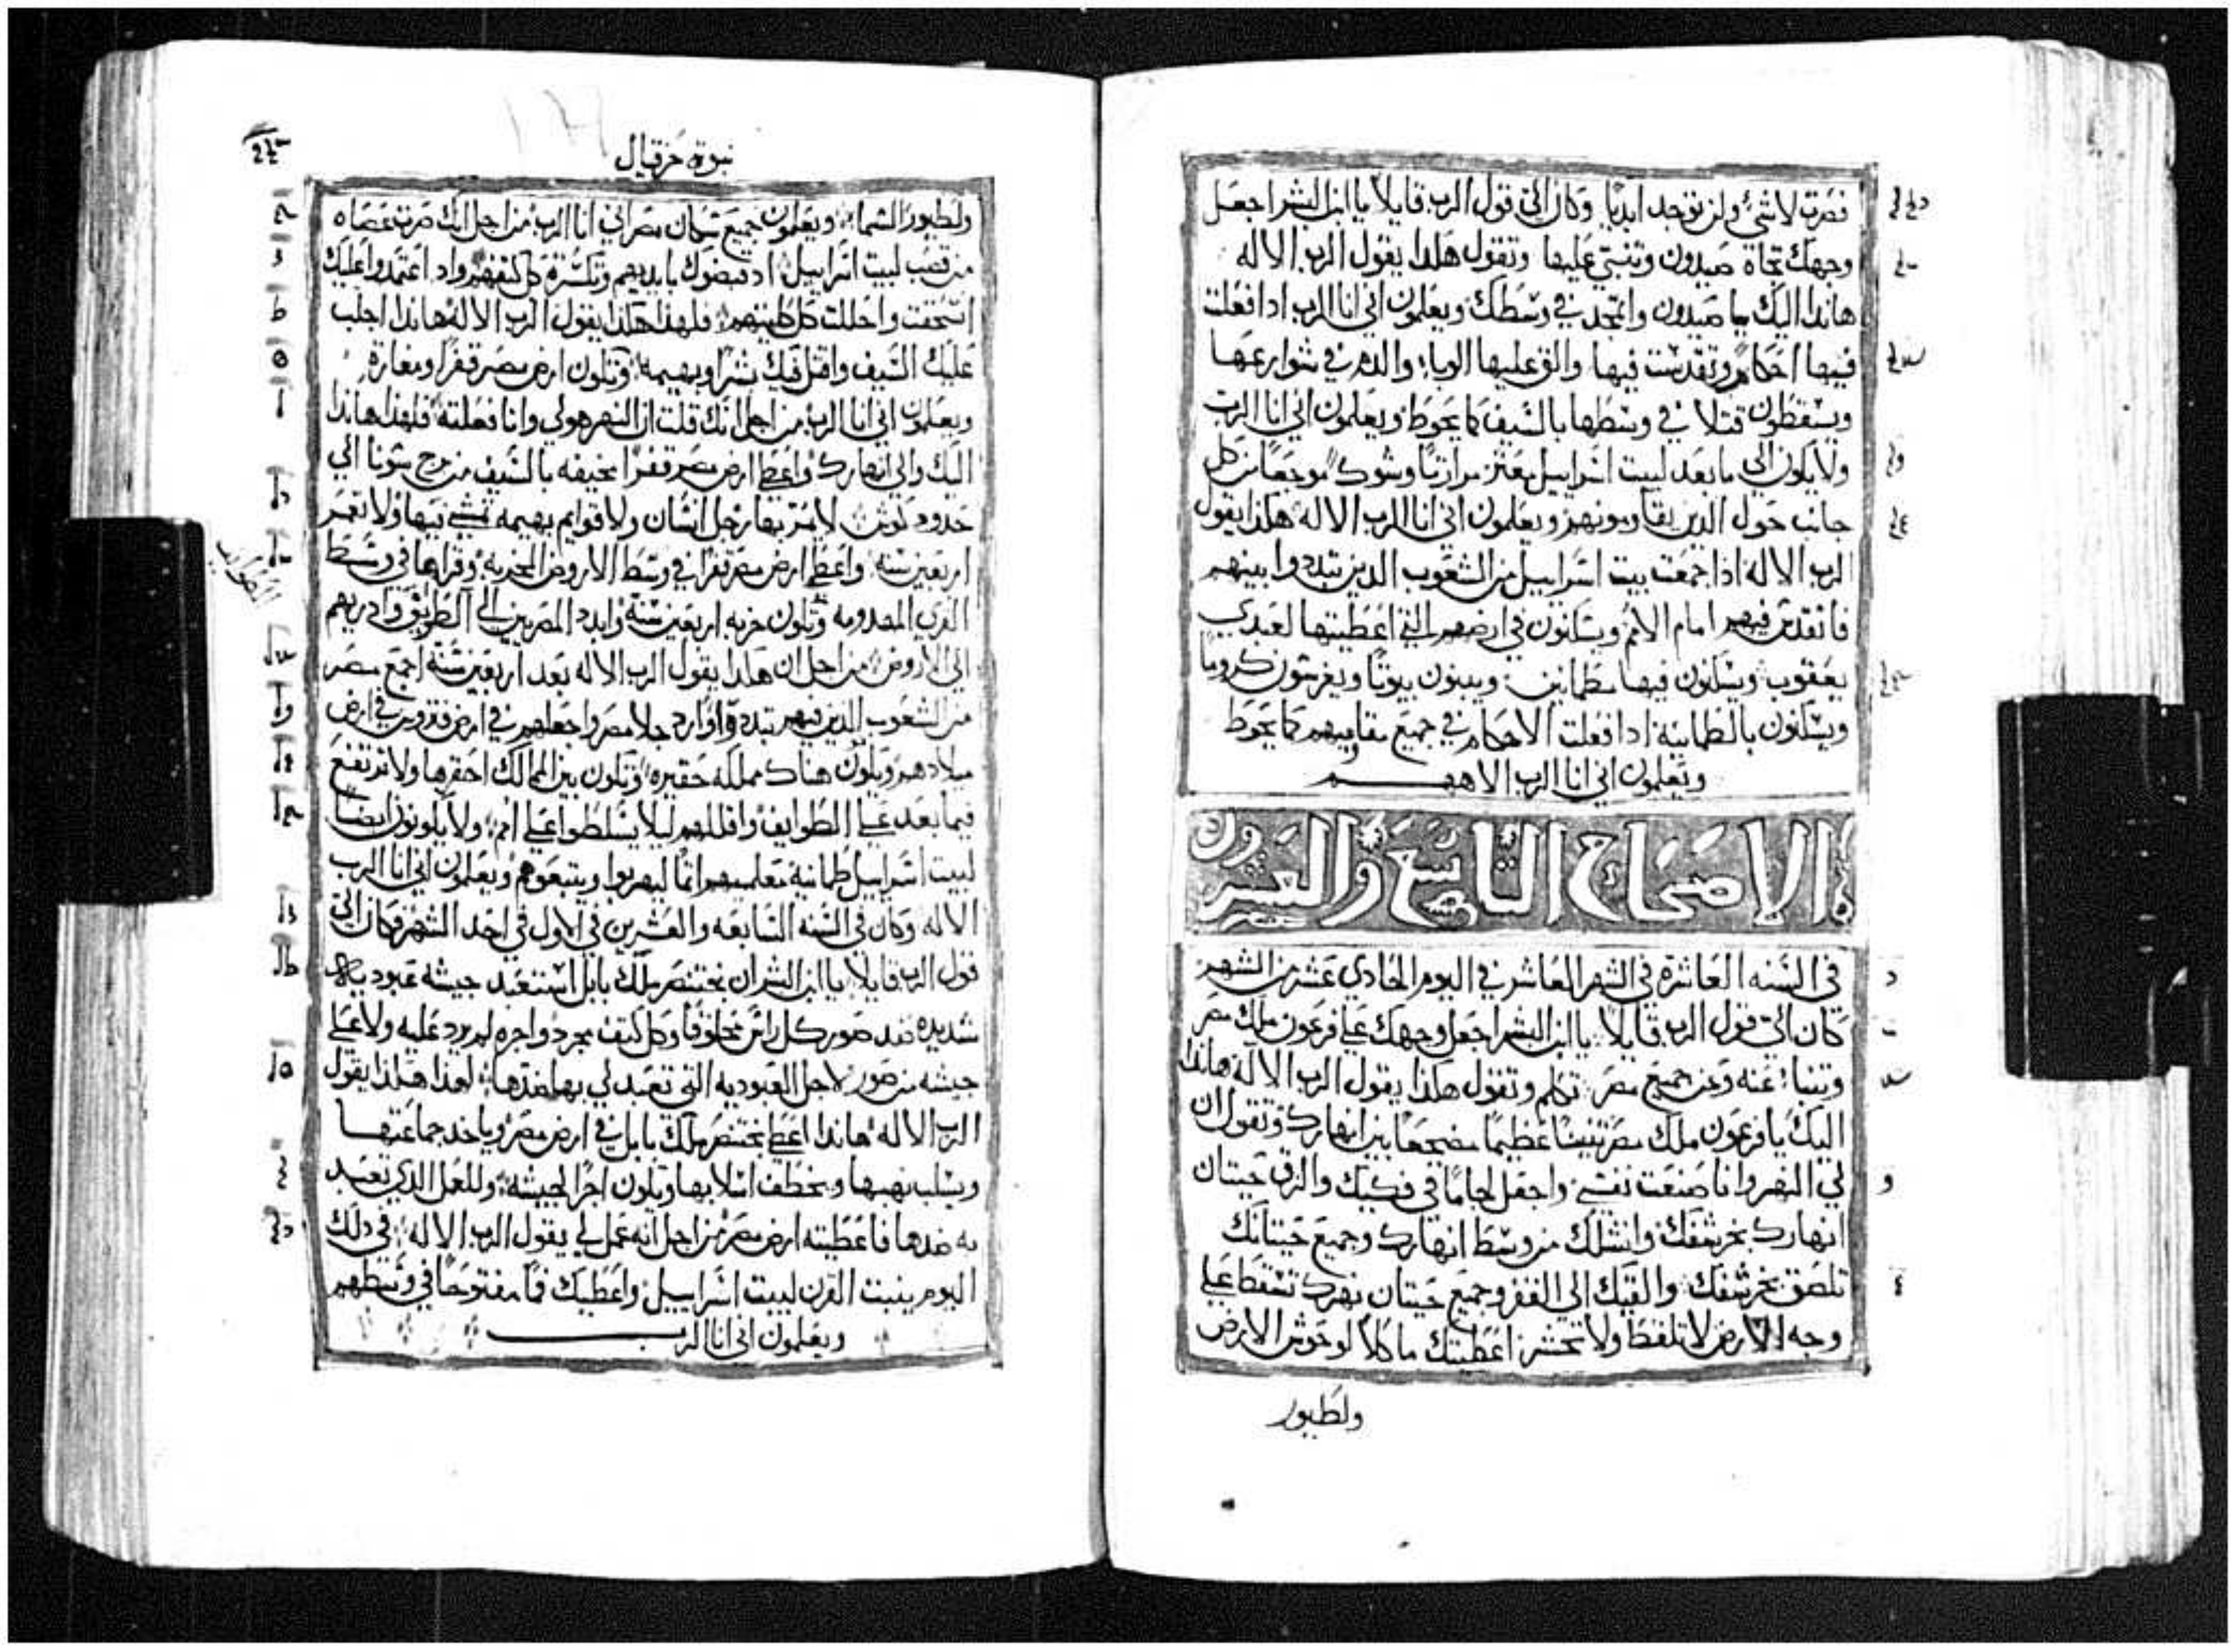 فصرت لا شئ ولن توجد ابديًا وكان الي قول الرب قايلا يا ابن البشر اجعل
وجهك تجاه صيدون وتنبي عليها وتقول هكدا يقول الرب الاله
هاندا اليك يا صيدون واتمجد في وسطك ويعلمون اني انا الرب ادا فعلت
فيها احكام وتقدست فيها والق عليها الوباء والدم في شوارعها
ويسقطون قتلا في وسطها بالسيف كما يحوط ويعلمون اني انا الرب
ولا يكون الي ما بعد لبيت اسراييل معثر مرارتا وشوك موجعا من كل
جانب حول الدين يقاومونهم ويعلمون اني انا الرب الاله هكدا يقول
الرب الاله اذا جمعت بيت اسراييل من الشعوب الدين تبددوا بينهم
فاتقدس فيهم امام الامم ويسكنون في ارضهم التي اعطيتها لعبدي
يعقوب ويسكنون فيها مطمانين ويبنون بيوتًا ويغرسون كرومًا
ويسكنون بالطمانينه ادا فعلت الاحكام في جميع مقاوميهم كما يحوط
ويعلمون اني انا الرب الاههم
الاصحاح التاسع والعشرون
في السنه العاشرة في الشهر العاشر في اليوم الحادي عشر من الشهر
كان الي قول الرب قايلا يا ابن البشر اجعل وجهك علي فرعون ملك مصر
وتنبا عنه وعن جميع مصر تكلم وتقول هكذا يقول الرب الاله هاندا
اليك يا فرعون ملك مصر تنينًا عظيمًا مضجعا بين انهارك وتقول ان
لي النهر وانا صنعت نفسي واجعل لجامًا في فكيك والزق حيتان
انهارك بخرشفك وانشلك من وسط انهارك وجميع حيتانك
تلصق بخرشفك والقيك الي القفر وجميع حيتان نهرك تسقط علي
وجه الارض لا تلفط ولا تحشر اعطيتك ماكلا لوحوش الارض
ولطيور
نبوة حزقيال
ولطيور السما ويعلمون جميع سكان مصر اني انا الرب من اجل انك صرت عصاه
من قصب لبيت اسراييل اد قبضوك بايديهم وتكسرة كل كتفهم واد اعتمدوا عليك
انسحقت واحللت كل كليتهم فلهذا هكذا يقول الرب الاله هاندا اجلب
عليك السيف واقتل فيك بشرًا وبهيمه وتكون ارض مصر قفرًا ومغارة
ويعلمون اني انا الرب من اجل انك قلت ان النهر هو لي وانا فعلته فلهذا هاندا
اليك والي انهارك واعطي ارض مصر قفرًا مخيفه بالسيف من برج سونا الي
حدود كوش لا يمر بها رجل انسان ولا قوايم بهيمه تمشي فيها ولا تعمر
اربعين سنه واعطي ارض مصر قفرًا في وسط الاروض المخربه وقراها في وسط
القري المهدومه وتكون خربه اربعين سنة وابدد المصريين الي الطوايف وادريهم
الطوايف
الي الاروض من اجل ان هكدا يقول الرب الاله بعد اربعين سنة اجمع مصر
من الشعوب الدين فيهم تبددة وارد جلا مصر واجعلهم في ارض فتروس في ارض
ميلادهم ويكون هناك مملكه حقيره وتكون بين الممالك احقرها ولا ترتفع
فيما بعد علي الطوايف واقللهم ليلا يتسلطوا علي امم ولا يكونون ايضا
لبيت اسراييل طمانية تعلمهم اثمًا ليهربوا ويتبعوهم ويعلمون اني انا الرب
الاله وكان في السنه السابعه والعشرين في الاول في احد الشهر فكان الي
قول الرب قايلا يا ابن البشر ان بختنصر ملك بابل استعبد جيشه عبوديه
شديده ضد صور كل راس محلوقًا وكل كتف مجرد واجره لم يرد عليه ولا علي
جيشه من صور لاجل العبوديه التي تعبد لي بها ضدها لهذا هكذا يقول
الرب الاله هاندا اعطي بختنصر ملك بابل في ارض مصر وياخد جماعتها
ويسلب نهبها ويخطف اسلابها وتكون اجرًا لجيشه وللعمل الدي تعبد
به ضدها فاعطيته ارض مصر من اجل انه عمل لي يقول الرب الاله في دلك
اليوم ينبت القرن لبيت اسراييل واعطيك فمًا مفتوحًا في وسطهم
ويعلمون اني انا الرب